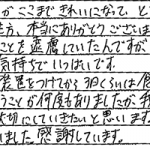 がここまできれいになって、と
先方、本当にありがとうございま
ことを遠慮していたんですが
気持ちでいっぱいです。
装置をつけてから3日くらいは
うことが何度もありましたが、
大切にしていきたいと思います
ました。感謝しています。